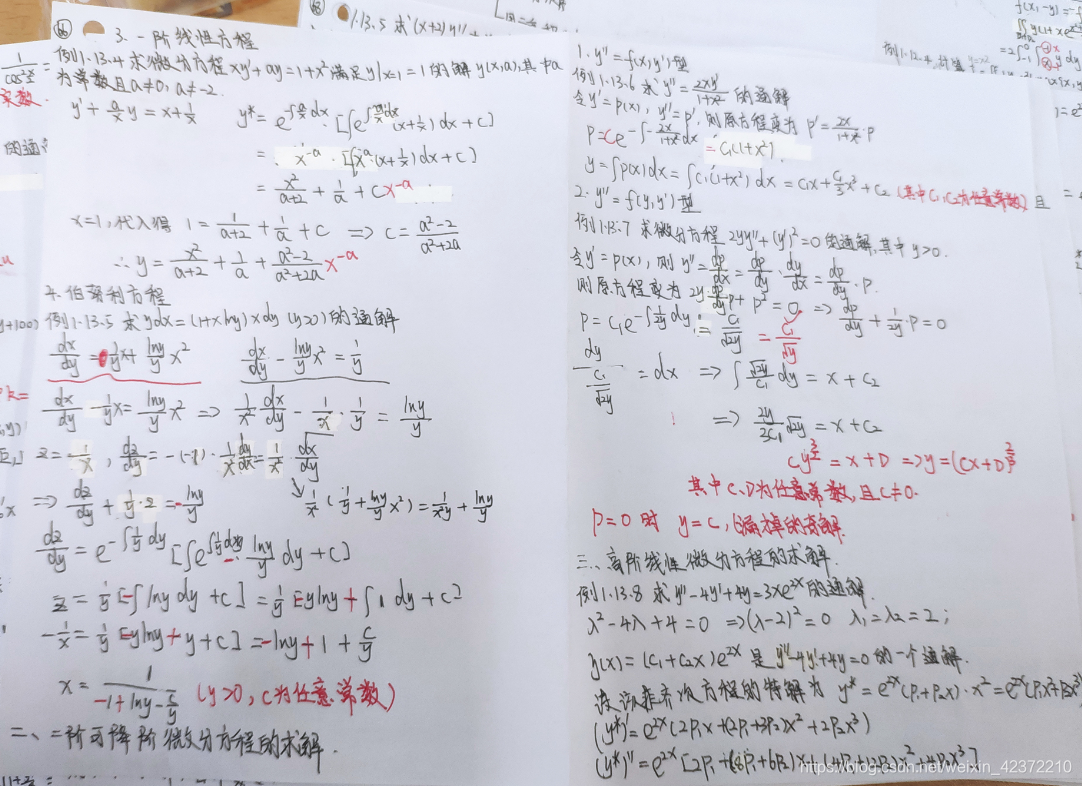 3. 一阶线性方程
例1.13.4 求微分方程 xy'+ay=1+x² 满足 y|x=1 = 1 的解 y(x,a), 其中a
为常数且 a≠0, a≠-2.
y' + a/x y = x + 1/x
= x^-a · [∫x^a·(x+1/x)dx+c]
= x²/(a+2) + 1/a + Cx^-a
x=1, 代入得 1 = 1/(a+2) + 1/a + C ⇒ C = (a²-2)/(a²+2a)
∴ y = x²/(a+2) + 1/a + (a²-2)/(a²+2a) x^-a
4. 伯努利方程
例1.13.5 求 ydx=(1+xlny)xdy (y>0) 的通解
dx/dy = 1/y x + lny/y x²
dx/dy - lny/y x² = 1/y
dx/dy - 1/y x = lny/y x² ⇒ 1/x² dx/dy - 1/x · 1/y = lny/y
⇒ dz/dy + 1/y·z = -lny/y
1/x²(1/y + lny/y x²) = 1/x²y + lny/y
z = 1/y [-∫lny dy + C] = 1/y [-ylny + ∫1 dy + C]
-1/x = 1/y [-ylny + y + C] = -lny + 1 + C/y
x = 1/(-1+lny-C/y) (y>0, C为任意常数)
二、二阶可降阶微分方程的求解.
1.13.5 求 (x+2)y''
1. y''=f(x,y')型
例1.13.6 求 y''=2xy'/(1+x²) 的通解
令 y'=p(x), y''=p', 则原方程变为 p' = 2x/(1+x²)·p
p = Ce^-∫-2x/(1+x²)dx = C₁(1+x²)
y = ∫p(x)dx = ∫C₁(1+x²)dx = C₁x + C₁/3 x³ + C₂ (其中C₁,C₂为任意常数) 且
2. y''=f(y,y')型
例1.13.7 求微分方程 2yy''+(y')²=0 的通解, 其中 y>0.
令 y'=p(x), 则 y''=dp/dx = dp/dy · dy/dx = dp/dy · p.
则原方程变为 2y·dp/dy p + p² = 0 ⇒ dp/dy + 1/2y·p = 0
p = C₁e^-∫1/2y dy = C₁/√2y = C₁/√y
dy/(C₁/√2y) = dx ⇒ ∫√2y/C₁ dy = x + C₂
⇒ 2y/3C₁ √2y = x + C₂
Cy^3/2 = x + D ⇒ y = (Cx+D)^2/3
其中C、D为任意常数, 且C≠0.
p=0 时 y=c,
三、高阶线性微分方程的求解.
例1.13.8 求 y''-4y'+4y=3xe^2x 的通解.
λ²-4λ+4=0 ⇒ (λ-2)²=0 λ₁=λ₂=2;
y(x)=(C₁+C₂x)e^2x 是 y''-4y'+4y=0 的一个通解.
设该非齐次方程的特解为 y*=e^2x(P₁+P₂x)·x²=e^2x(P₁x²+P₂x³)
(y*)'=e^2x(2P₁x+(2P₁+3P₂)x²+2P₂x³)
https://blog.csdn.net/weixin_42372210